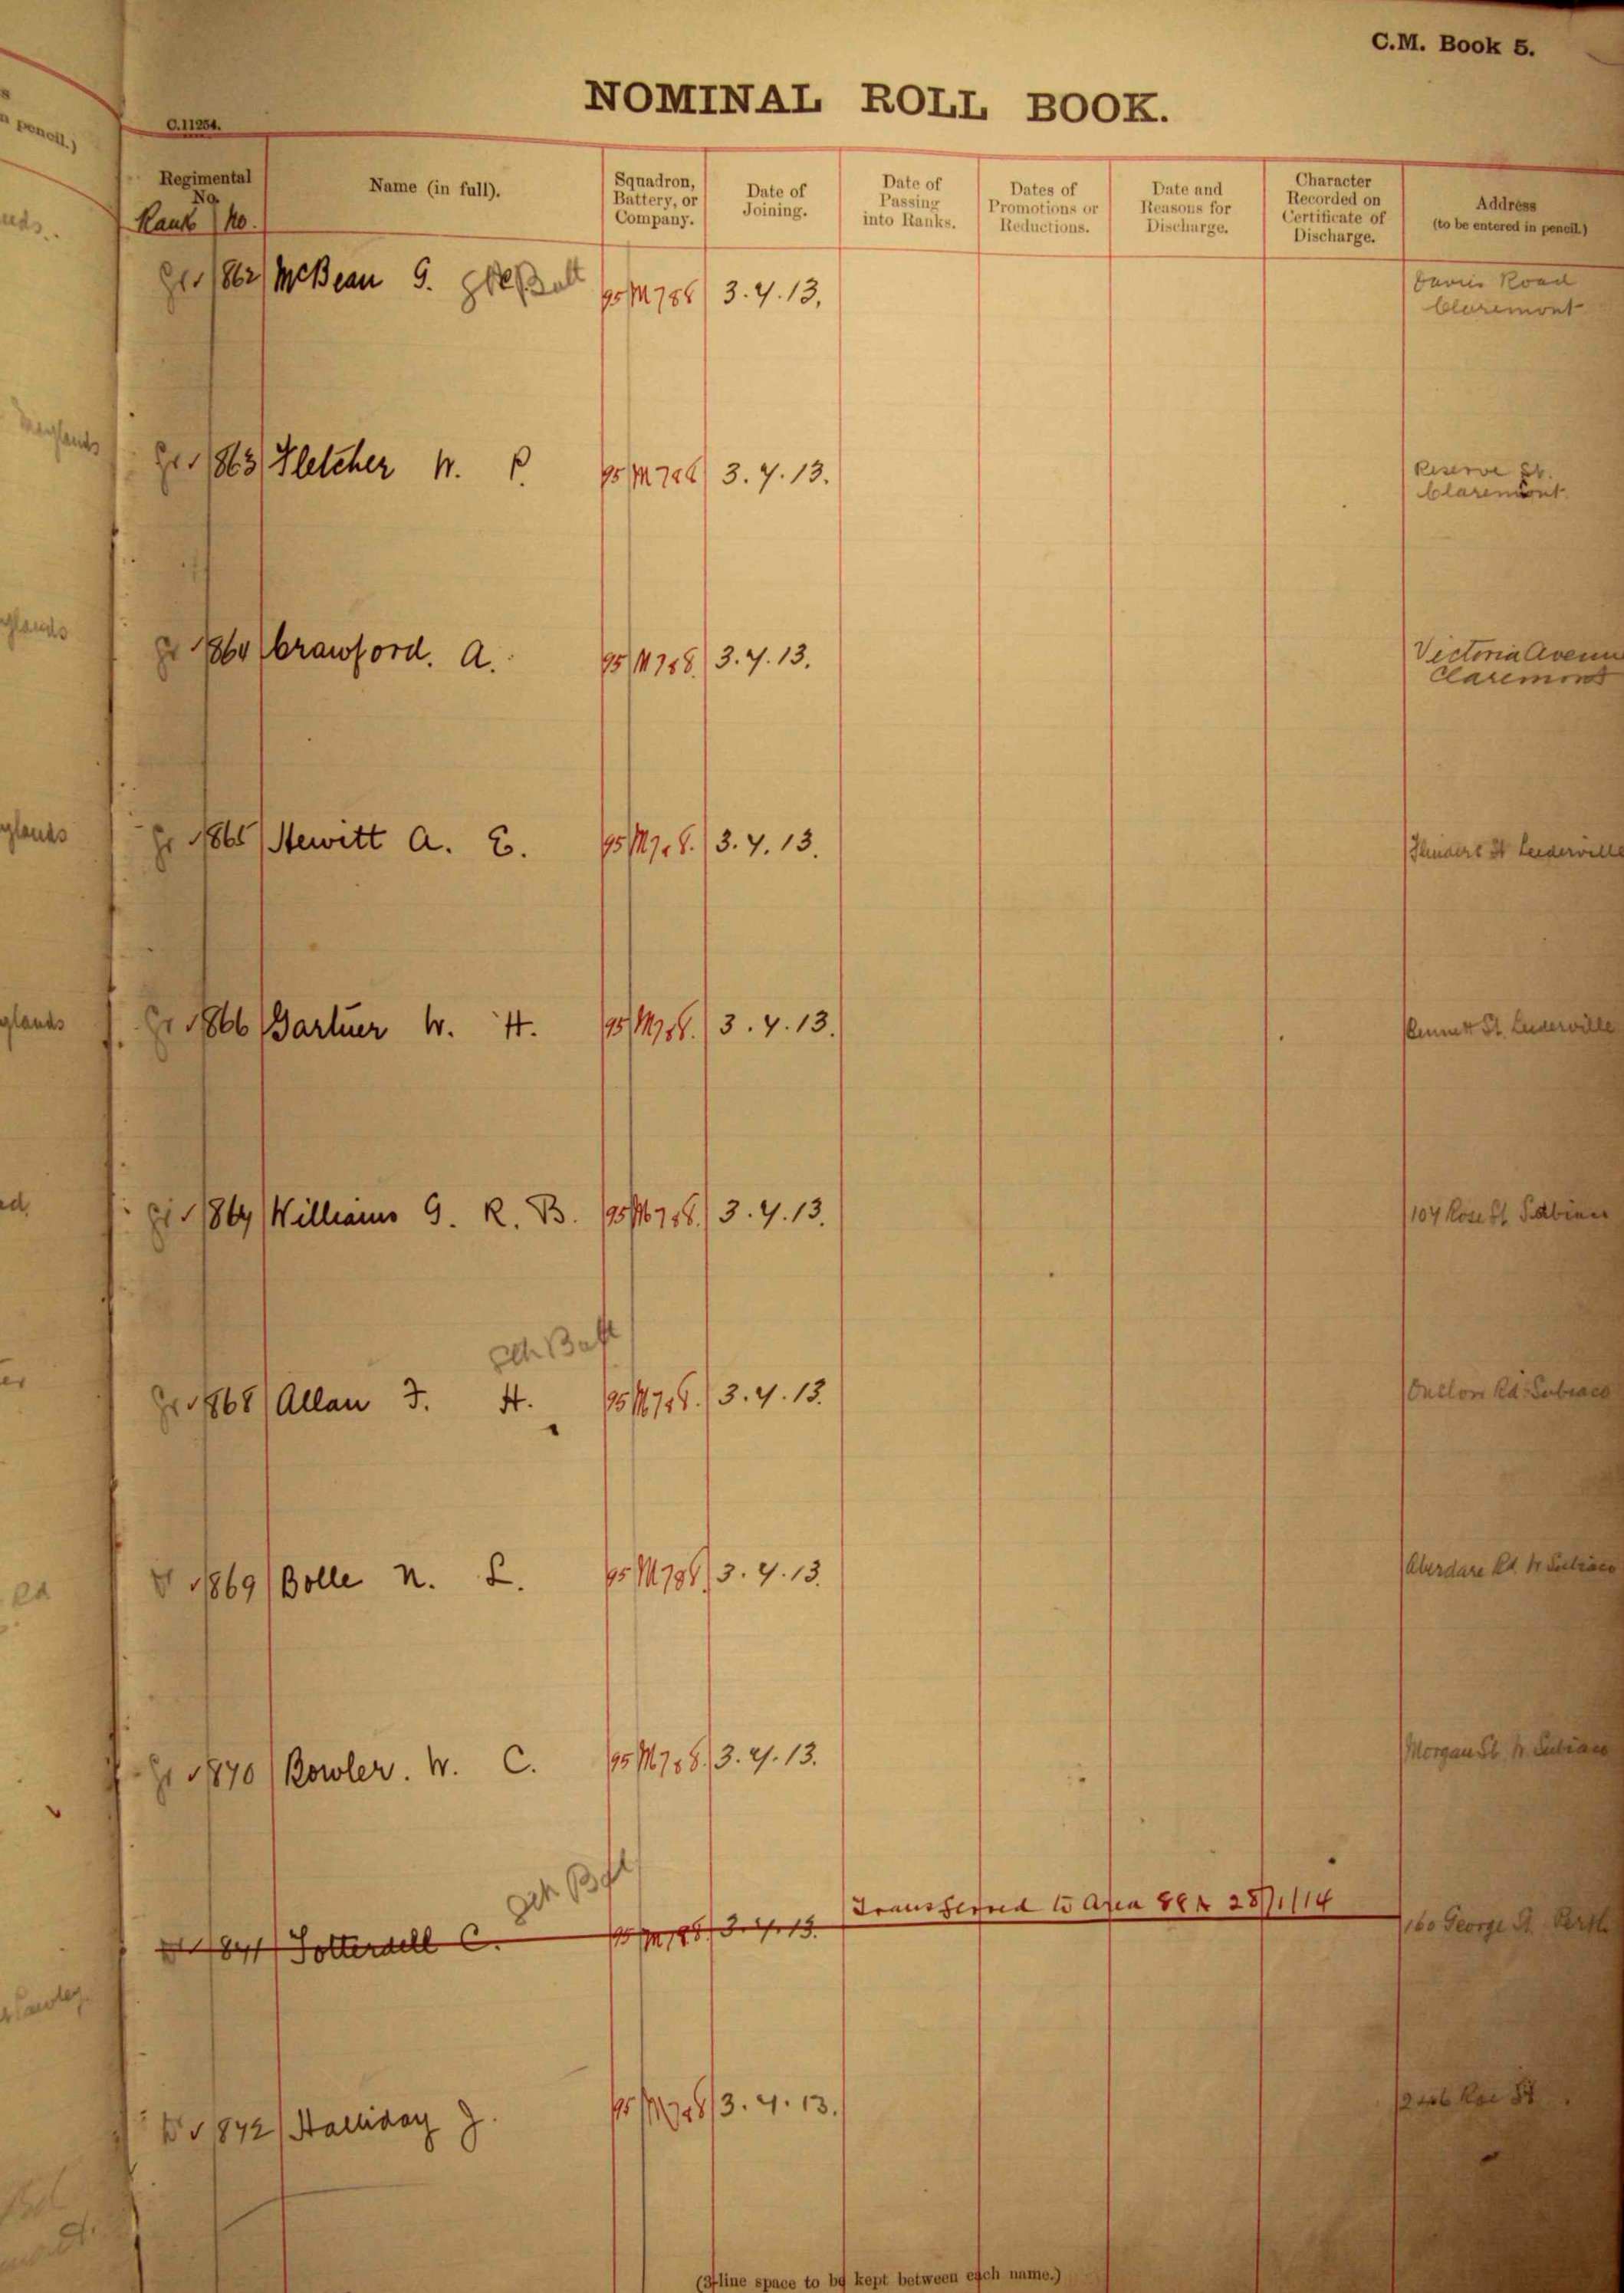 C.M. Book 5.
NOMINAL ROLL BOOK.
C.11254.
Regimental No.
Rank No.
Name (in full).
Squadron, Battery, or Company.
Date of Joining.
Date of Passing into Ranks.
Dates of Promotions or Reductions.
Date and Reasons for Discharge.
Character Recorded on Certificate of Discharge.
Address (to be entered in pencil.)
Gr 1862 McBean G. 95 M 788 3.7.13.
Davies Road
Claremont
Gr 1863 Fletcher W. P. 95 M 788 3.7.13.
Reserve St.
Claremont.
Gr 1864 Crawford. A. 95 M 788 3.7.13.
Victoria Avenu
Claremont
Gr 1865 Hewitt A. E. 95 M 788. 3.7.13.
St Leederville
Gr 1866 Gartner W. H. 95 M 788. 3.7.13.
Bennett St. Leederville
Gr 1867 Williams G. R. B. 95 M 788. 3.7.13.
107 Rose St Subiaco
8th Batt
Gr 1868 Allan F. H. 95 M 788. 3.7.13.
Onslow Rd Subiaco
1869 Bolle N. L. 95 M 788 3.7.13.
Aberdare Rd. W Subiaco
Gr 1870 Bowler. W. C. 95 M 788. 3.7.13.
Morgan St. W Subiaco
8th Bat
1871 Totterdell C. 95 M 788 3.7.13. Transferred to Area 88A 28/1/14
160 George St. Perth
1872 Halliday J. 95 M 788 3.7.13.
Roe St
(3-line space to be kept between each name.)